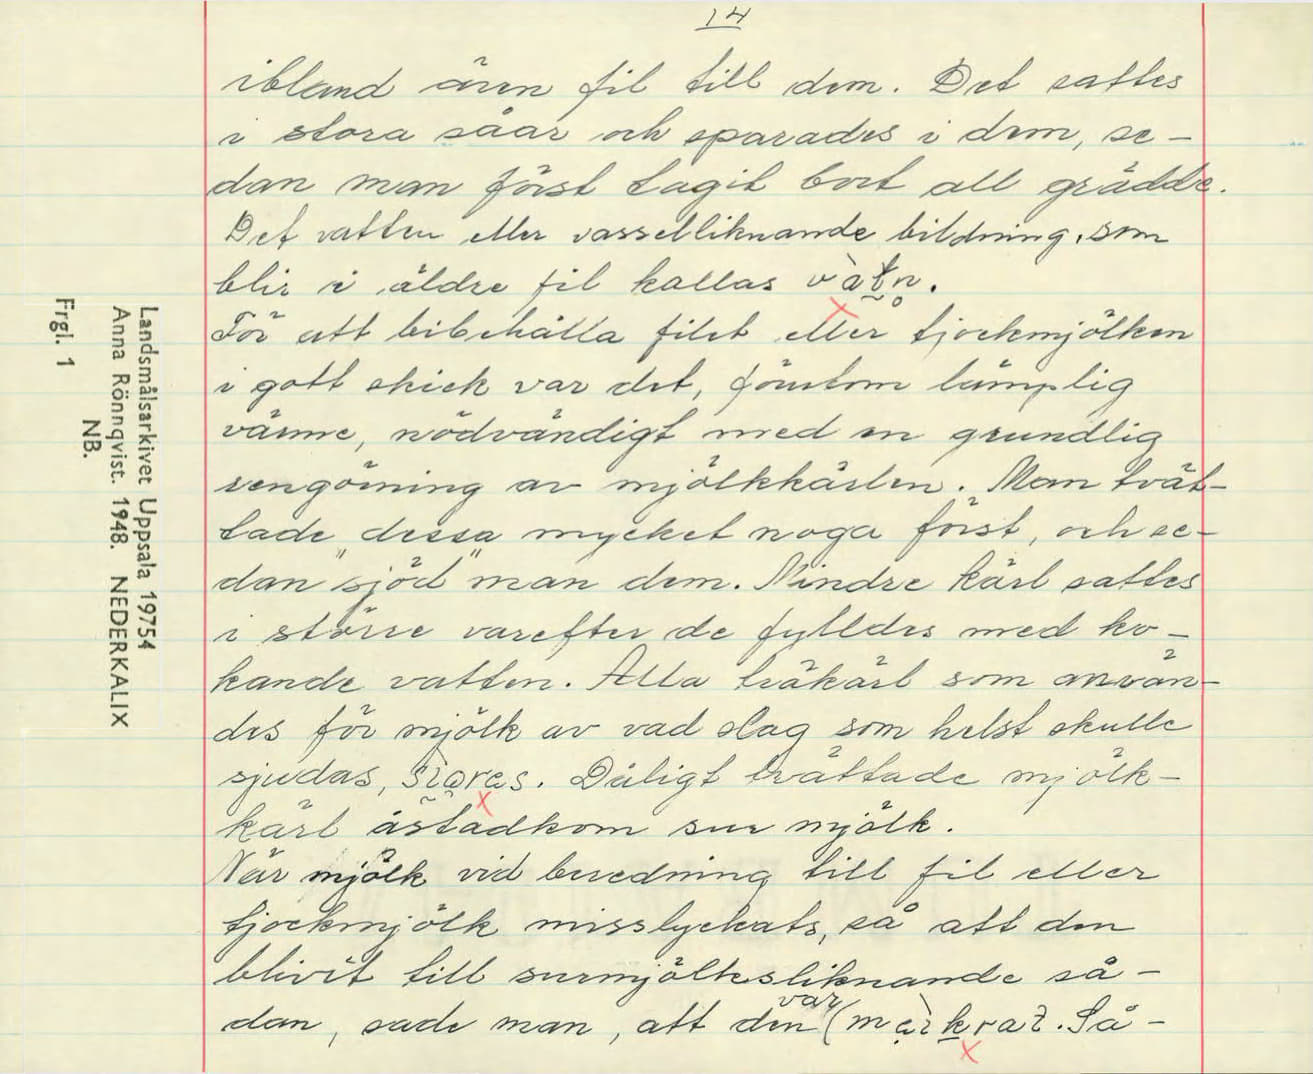 14
ibland även fil till dem. Det sattes
i stora såar och sparades i dem, se-
dan man först tagit bort all grädde.
Det vatten eller vasselliknande bildning, som
blir i äldre fil kallas vàtn.
För att bibehålla filet eller tjockmjölken
i gott skick var det, förutom lämplig
värme, nödvändigt med en grundlig
rengöring av mjölkkärlen. Man tvät-
tade dessa mycket noga först, och se-
dan "sjöd" man dem. Mindre kärl sattes
i större varefter de fylldes med ko-
kande vatten. Alla träkärl som använ-
des för mjölk av vad slag som helst skulle
sjudas, Dåligt tvättade mjölk-
kärl åstadkom sur mjölk.
När mjölk vid beredning till fil eller
tjockmjölk misslyckats, så att den
blivit till surmjölksliknande så-
dan, sade man, att den var Så-
Landsmålsarkivet Uppsala 19754
Anna Rönnqvist. 1948. NEDERKALIX
NB.
Frgl. 1